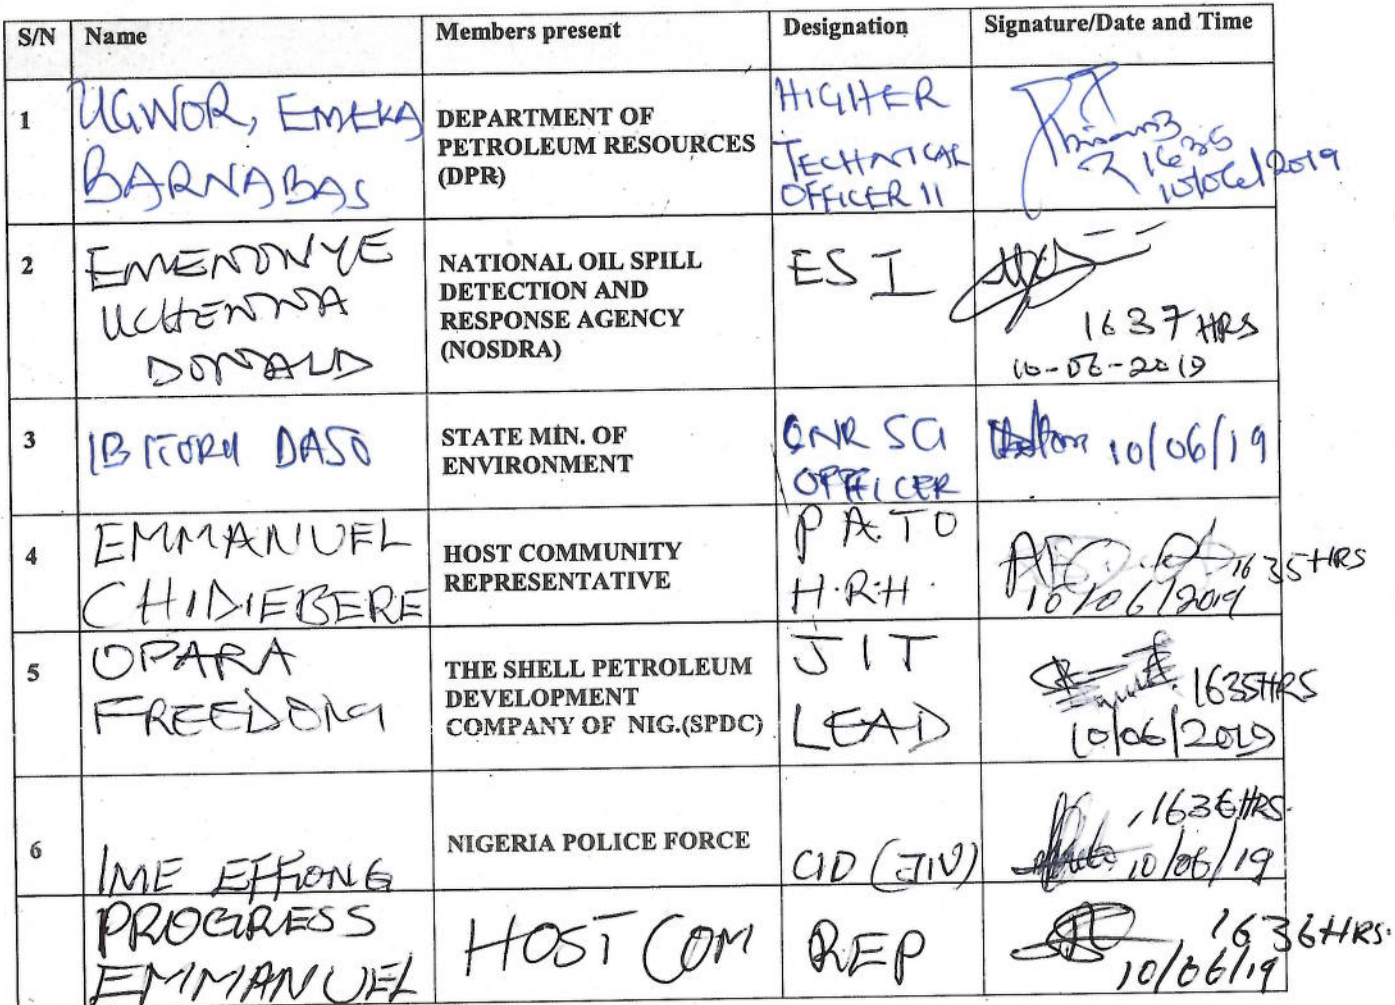 S/N Name Members present Designation Signature/Date and Time
1
UGWOR, EMEKA
BARNABAS
DEPARTMENT OF
PETROLEUM RESOURCES
(DPR)
HIGHER
TECHNICAL
OFFICER II
1635
10/06/2019
2
EMENONYE
UCHENNA
DONALD
NATIONAL OIL SPILL
DETECTION AND
RESPONSE AGENCY
(NOSDRA)
ES I
1637 HRS
10-06-2019
3
IBITORU DASO
STATE MIN. OF
ENVIRONMENT
OFFICER
10/06/19
4
EMMANUEL
CHIDIEBERE
HOST COMMUNITY
REPRESENTATIVE
P.A. TO
H.R.H.
1635 HRS
10/06/2019
5
OPARA
FREEDOM
THE SHELL PETROLEUM
DEVELOPMENT
COMPANY OF NIG.(SPDC)
JIT
LEAD
1635HRS
10/06/2019
6
IME EFFIONG
NIGERIA POLICE FORCE
CID (JIV)
1636HRS.
10/06/19
PROGRESS
EMMANUEL
HOST COM
REP
1636HRS.
10/06/19